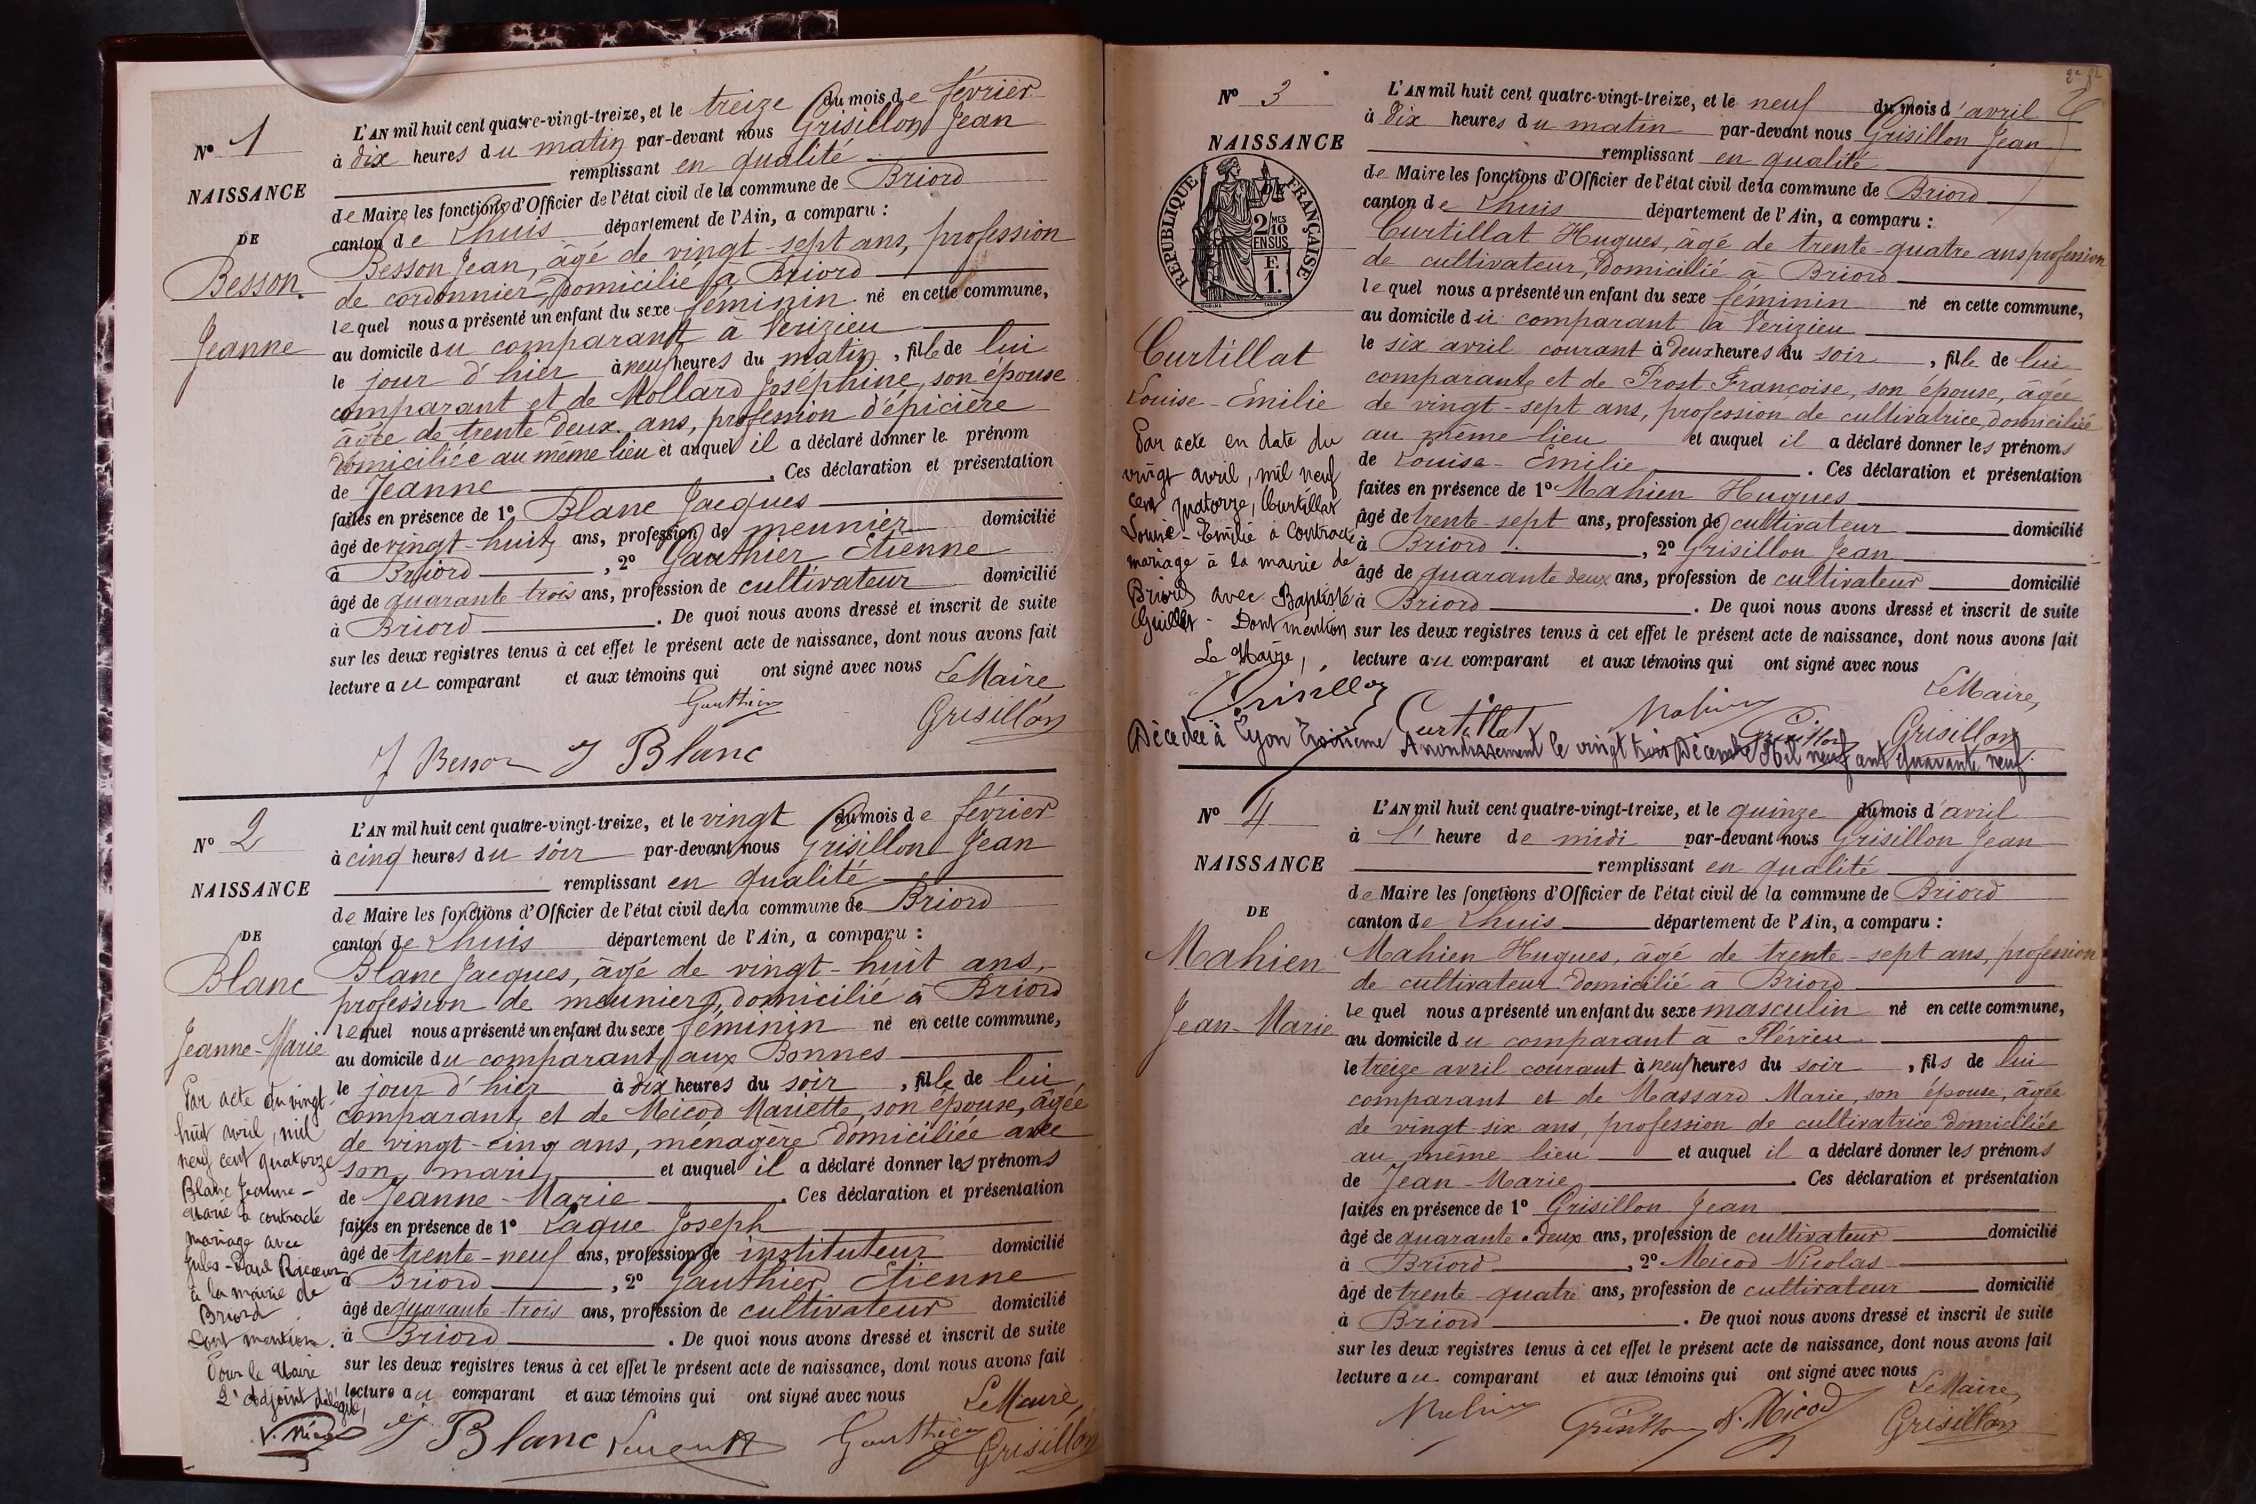 N° 1
NAISSANCE
DE
Besson
Jeanne
L'AN mil huit cent quatre-vingt-treize, et le treize du mois de février
à dix heures du matin par-devant nous Grisillon Jean
remplissant en qualité
de Maire les fonctions d'Officier de l'état civil de la commune de Briord
canton de Lhuis département de l'Ain, a comparu :
Besson Jean, âgé de vingt-sept ans, profession
de cordonnier, domicilié à Briord
lequel nous a présenté un enfant du sexe féminin né en cette commune,
au domicile du comparant à Verizieu
le jour d'hier à neuf heures du matin, fille de lui
comparant et de Mollard Joséphine, son épouse
âgée de trente deux ans, profession d'épicière
domiciliée au même lieu et auquel il a déclaré donner le prénom
de Jeanne. Ces déclaration et présentation
faites en présence de 1° Blanc Jacques
âgé de vingt-huit ans, profession de meunier domicilié
à Briord, 2° Gauthier Etienne
âgé de quarante-trois ans, profession de cultivateur domicilié
à Briord. De quoi nous avons dressé et inscrit de suite
sur les deux registres tenus à cet effet le présent acte de naissance, dont nous avons fait
lecture au comparant et aux témoins qui ont signé avec nous
Le Maire
Gauthier
Grisillon
J Besson J Blanc
N° 2
NAISSANCE
DE
Blanc
Jeanne-Marie
Par acte du vingt-
huit avril, mil
neuf cent quatorze
Blanc Jeanne-
Marie a contracté
mariage avec
Jules-Paul
à la mairie de
Briord
Dont mention.
Pour le Maire
L'adjoint délégué,
L'AN mil huit cent quatre-vingt-treize, et le vingt du mois de février
à cinq heures du soir par-devant nous Grisillon Jean
remplissant en qualité
de Maire les fonctions d'Officier de l'état civil de la commune de Briord
canton de Lhuis département de l'Ain, a comparu :
Blanc Jacques, âgé de vingt-huit ans,
profession de meunier, domicilié à Briord
lequel nous a présenté un enfant du sexe féminin né en cette commune,
au domicile du comparant aux Bonnes
le jour d'hier à dix heures du soir, fille de lui
comparant et de Micod Mariette, son épouse, âgée
de vingt-cinq ans, ménagère domiciliée avec
son mari et auquel il a déclaré donner les prénoms
de Jeanne-Marie. Ces déclaration et présentation
faites en présence de 1° Laque Joseph
âgé de trente-neuf ans, profession de instituteur domicilié
à Briord, 2° Gauthier Etienne
âgé de quarante-trois ans, profession de cultivateur domicilié
à Briord. De quoi nous avons dressé et inscrit de suite
sur les deux registres tenus à cet effet le présent acte de naissance, dont nous avons fait
lecture au comparant et aux témoins qui ont signé avec nous
Le Maire,
J Blanc Gauthier Grisillon
N° 3
NAISSANCE
RÉPUBLIQUE FRANÇAISE
2/10 MES
EN SUS
F.
1.
Curtillat
Louise-Emilie
Par acte en date du
vingt avril, mil neuf
cent quatorze, Curtillat
Louise-Emilie a contracté
mariage à la mairie de
Briord avec Baptiste
Guillet - Dont mention
Le Maire,
Grisillon
L'AN mil huit cent quatre-vingt-treize, et le neuf du mois d'avril
à dix heures du matin par-devant nous Grisillon Jean
remplissant en qualité
de Maire les fonctions d'Officier de l'état civil de la commune de Briord
canton de Lhuis département de l'Ain, a comparu :
Curtillat Hugues, âgé de trente-quatre ans profession
de cultivateur, domicilié à Briord
lequel nous a présenté un enfant du sexe féminin né en cette commune,
au domicile du comparant à Verizieu
le six avril courant à deux heures du soir, fille de lui
comparant et de Prost Françoise, son épouse, âgée
de vingt-sept ans, profession de cultivatrice, domiciliée
au même lieu et auquel il a déclaré donner les prénoms
de Louise-Emilie. Ces déclaration et présentation
faites en présence de 1° Mahien Hugues
âgé de trente-sept ans, profession de cultivateur domicilié
à Briord, 2° Grisillon Jean
âgé de quarante deux ans, profession de cultivateur domicilié
à Briord. De quoi nous avons dressé et inscrit de suite
sur les deux registres tenus à cet effet le présent acte de naissance, dont nous avons fait
lecture au comparant et aux témoins qui ont signé avec nous
Le Maire,
Curtillat Mahien Grisillon Grisillon
Décédée à Lyon Troisième Arrondissement le vingt trois Décembre Mil neuf cent quarante neuf.
N° 4
NAISSANCE
DE
Mahien
Jean-Marie
L'AN mil huit cent quatre-vingt-treize, et le quinze du mois d'avril
à l' heure de midi par-devant nous Grisillon Jean
remplissant en qualité
de Maire les fonctions d'Officier de l'état civil de la commune de Briord
canton de Lhuis département de l'Ain, a comparu :
Mahien Hugues, âgé de trente-sept ans, profession
de cultivateur domicilié à Briord
lequel nous a présenté un enfant du sexe masculin né en cette commune,
au domicile du comparant à Flévieu
le treize avril courant à neuf heures du soir, fils de lui
comparant et de Massard Marie, son épouse, âgée
de vingt-six ans, profession de cultivatrice domiciliée
au même lieu et auquel il a déclaré donner les prénoms
de Jean-Marie. Ces déclaration et présentation
faites en présence de 1° Grisillon Jean
âgé de quarante-deux ans, profession de cultivateur domicilié
à Briord, 2° Micod Nicolas
âgé de trente-quatre ans, profession de cultivateur domicilié
à Briord. De quoi nous avons dressé et inscrit de suite
sur les deux registres tenus à cet effet le présent acte de naissance, dont nous avons fait
lecture au comparant et aux témoins qui ont signé avec nous
Le Maire,
Mahien Grisillon N. Micod Grisillon